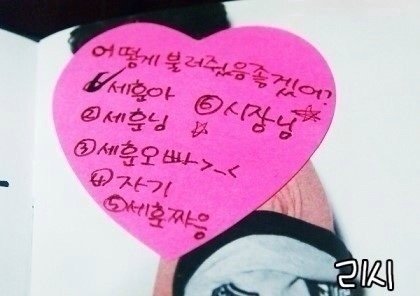 어떻게 불러줬음 좋겠어?
① 세훈아
② 세훈님 ⑥ 시장님☆
☆
③ 세훈오빠>_<
④ 자기
⑤ 세훈쨔응
리시